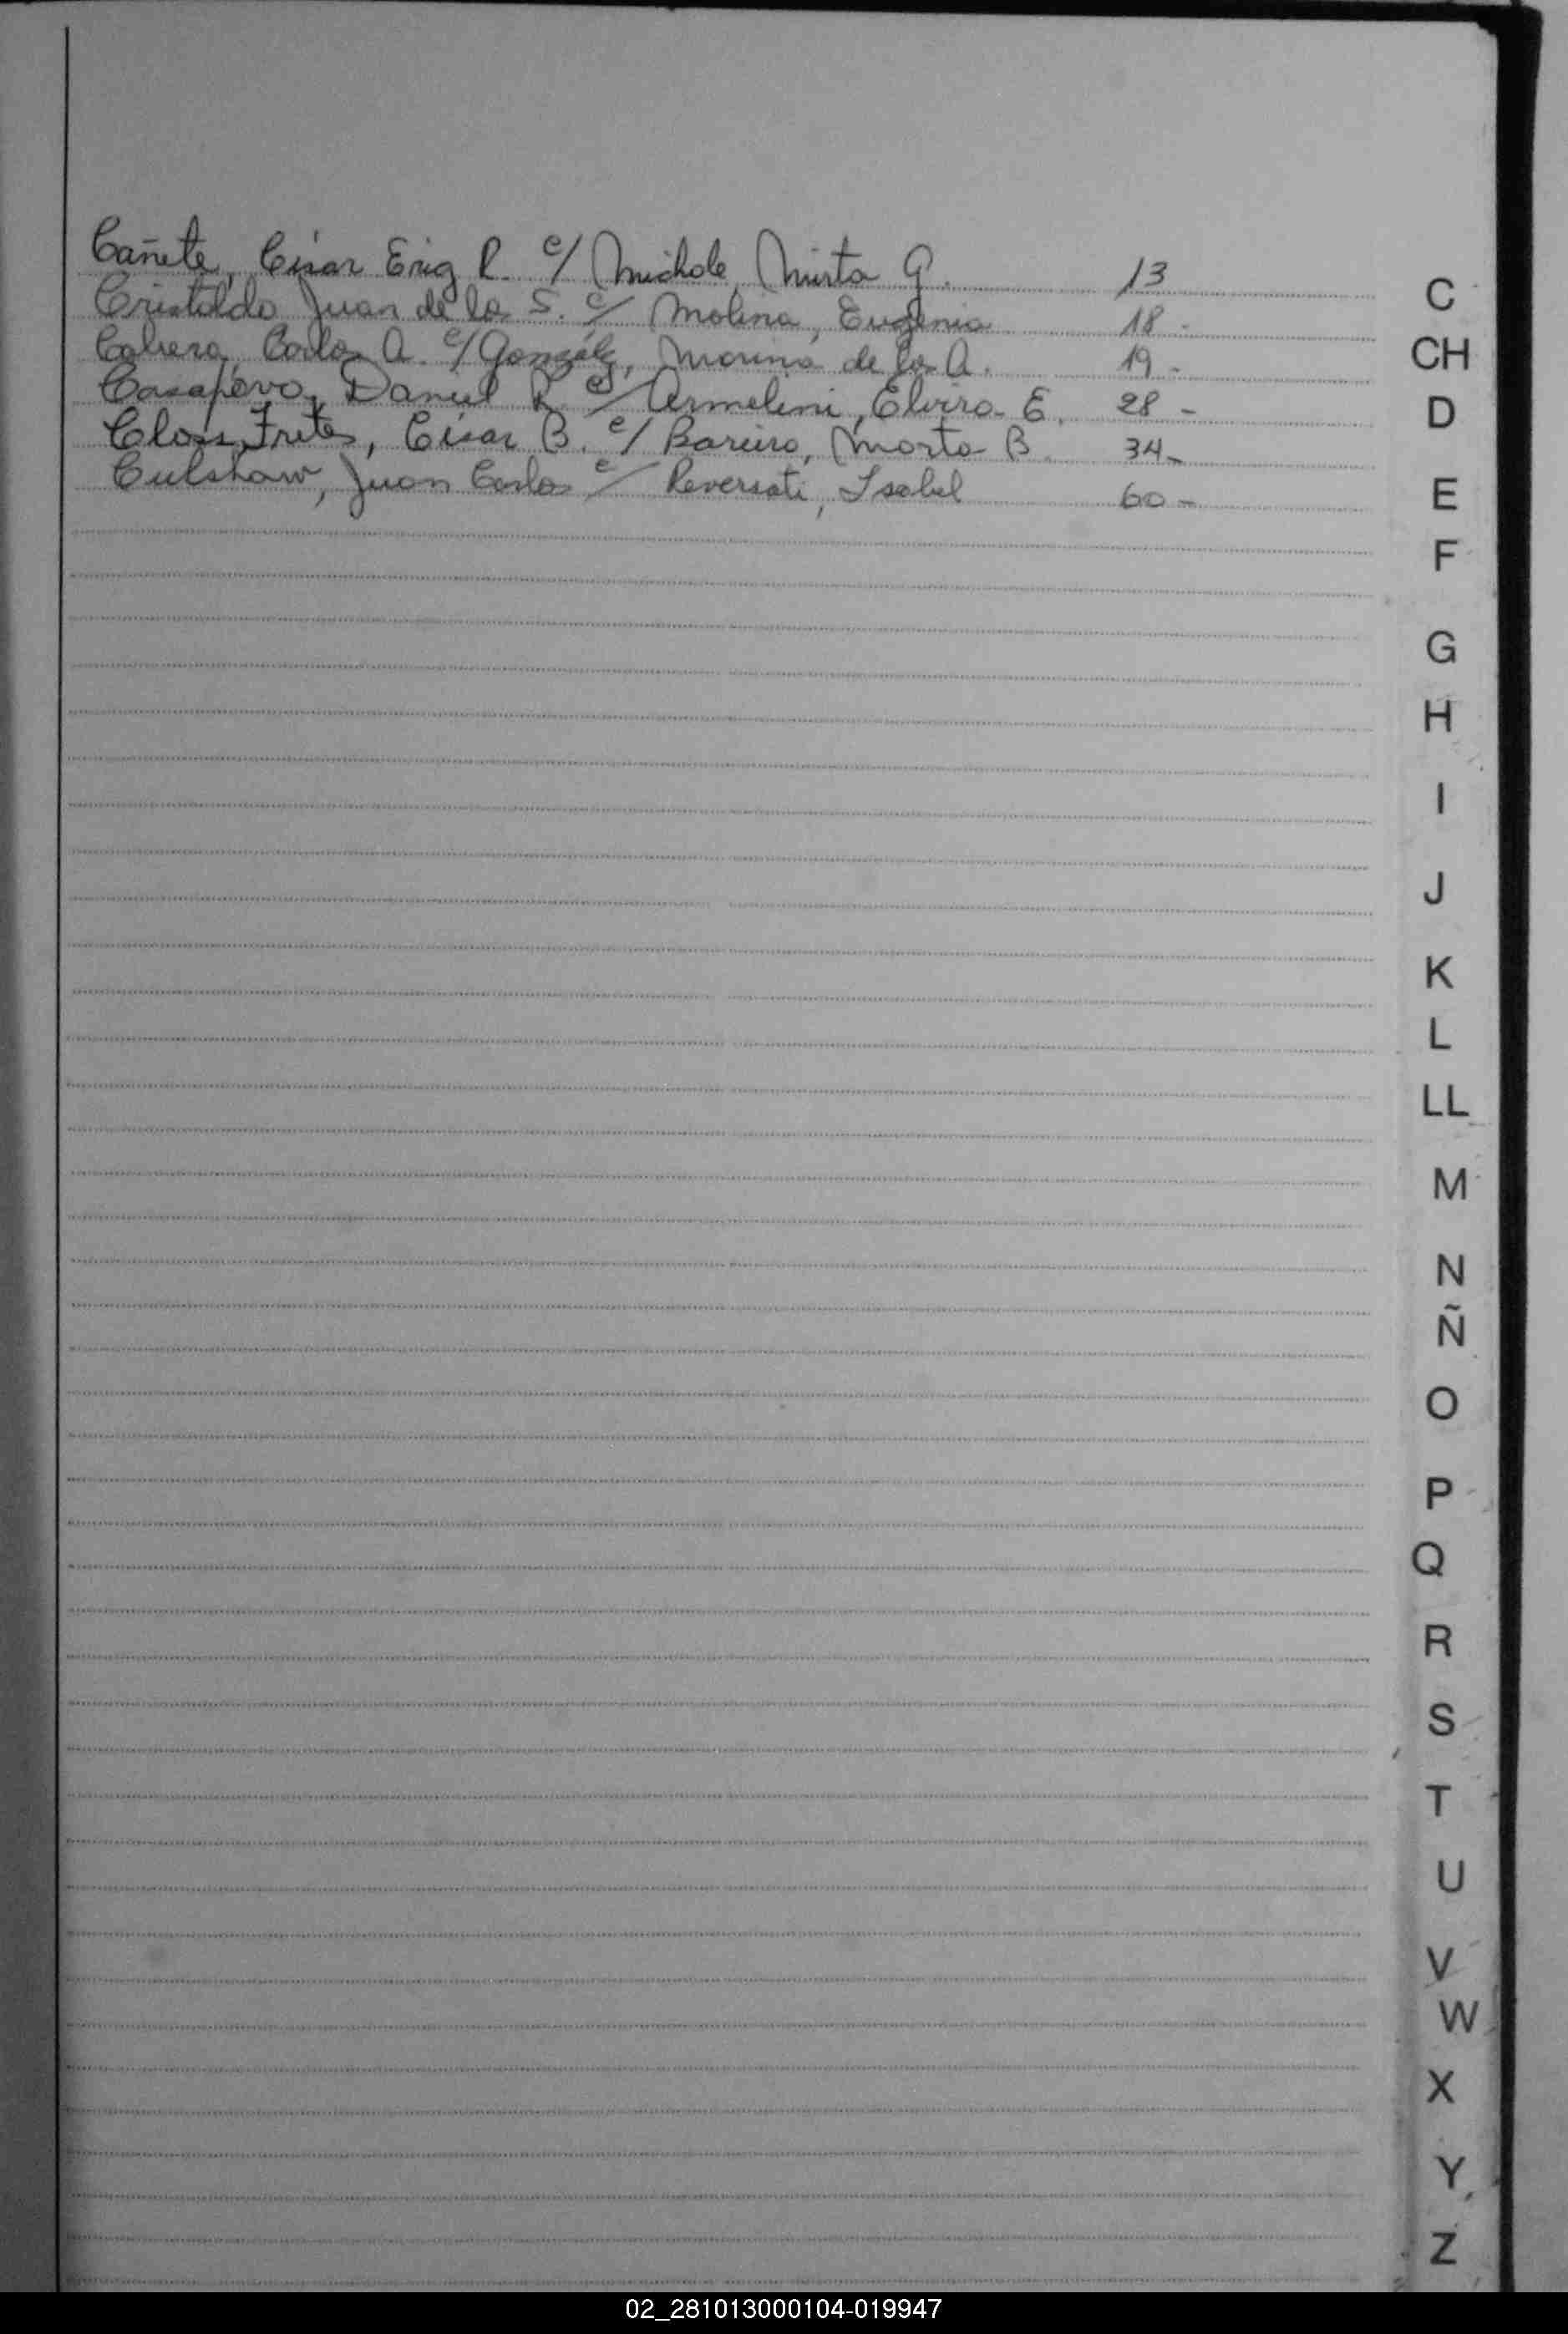 Cañete, César Erig R. c/ Michole, Mirta G. 13
Cristaldo Juan de la S. c/ Molina, Eugenia 18 -
Cabrera, Carlos A. c/ González, Marina de los A. 19 -
Casapovo, Daniel R. c/ Armelini, Elvira E. 28 -
Closs Frites, César B. c/ Bareiro, Marta B. 34 -
Culshaw, Juan Carlos c/ Reversati, Isabel 60 -
C
CH
D
E
F
G
H
I
J
K
L
LL
M
N
Ñ
O
P
Q
R
S
T
U
V
W
X
Y
Z
02_281013000104-019947